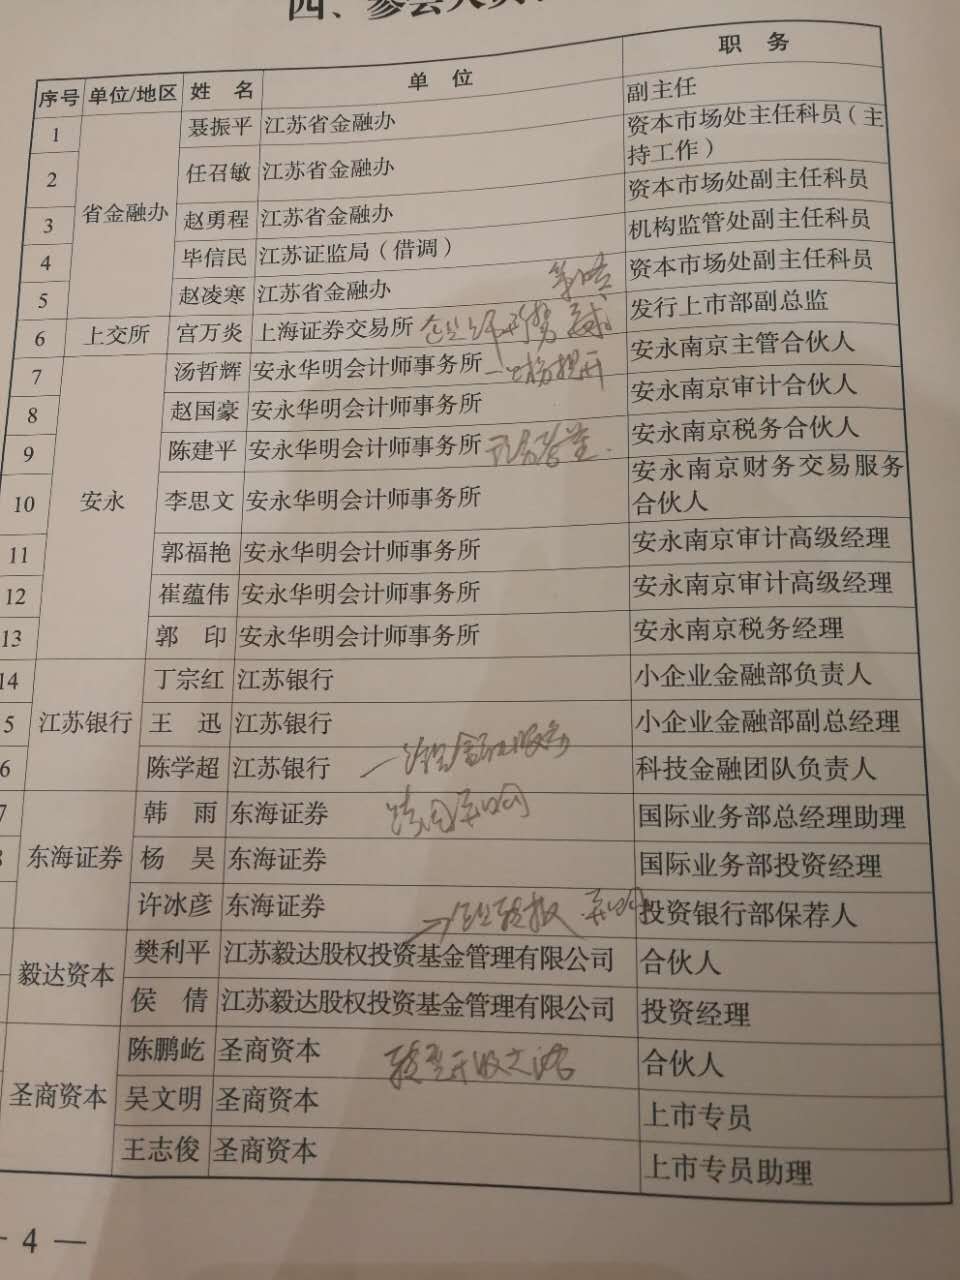 四、参会人员
序号 单位/地区 姓 名 单 位 职 务
1 省金融办 聂振平 江苏省金融办 副主任
2 任召敏 江苏省金融办 资本市场处主任科员（主
持工作）
3 赵勇程 江苏省金融办 资本市场处副主任科员
4 毕信民 江苏证监局（借调） 机构监管处副主任科员
5 赵凌寒 江苏省金融办 资本市场处副主任科员
6 上交所 宫万炎 上海证券交易所 发行上市部副总监
7 安永 汤哲辉 安永华明会计师事务所 安永南京主管合伙人
8 赵国豪 安永华明会计师事务所 安永南京审计合伙人
9 陈建平 安永华明会计师事务所 安永南京税务合伙人
10 李思文 安永华明会计师事务所 安永南京财务交易服务
合伙人
11 郭福艳 安永华明会计师事务所 安永南京审计高级经理
12 崔蕴伟 安永华明会计师事务所 安永南京审计高级经理
13 郭 印 安永华明会计师事务所 安永南京税务经理
14 江苏银行 丁宗红 江苏银行 小企业金融部负责人
5 王 迅 江苏银行 小企业金融部副总经理
6 陈学超 江苏银行 科技金融团队负责人
7 东海证券 韩 雨 东海证券 国际业务部总经理助理
杨 昊 东海证券 国际业务部投资经理
许冰彦 东海证券 投资银行部保荐人
毅达资本 樊利平 江苏毅达股权投资基金管理有限公司 合伙人
侯 倩 江苏毅达股权投资基金管理有限公司 投资经理
圣商资本 陈鹏屹 圣商资本 合伙人
吴文明 圣商资本 上市专员
王志俊 圣商资本 上市专员助理
4 —